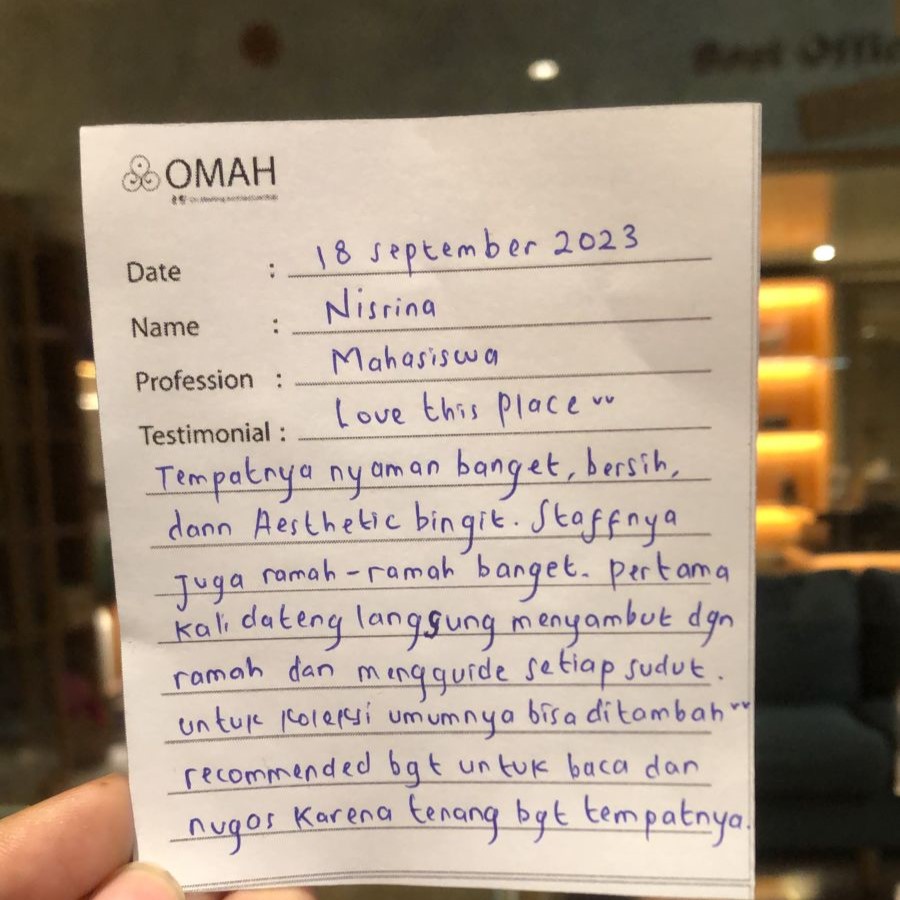 OMAH
Date : 18 september 2023
Name : Nisrina
Profession : Mahasiswa
Testimonial : Love this place
Tempatnya nyaman banget, bersih,
dann Aesthetic bingit. Staffnya
juga ramah-ramah banget. pertama
kali dateng langsung menyambut dgn
ramah dan mengguide setiap sudut.
untuk koleksi umumnya bisa ditambah
recommended bgt untuk baca dan
nugas karena tenang bgt tempatnya.